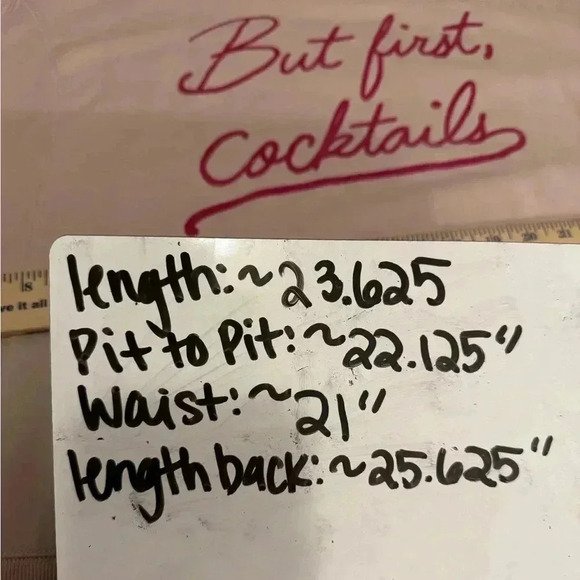 But first,
Cocktails
8
21
ve it all
length: ~23.625
Pit to Pit: ~22.125"
Waist: ~21"
length back: ~25.625"